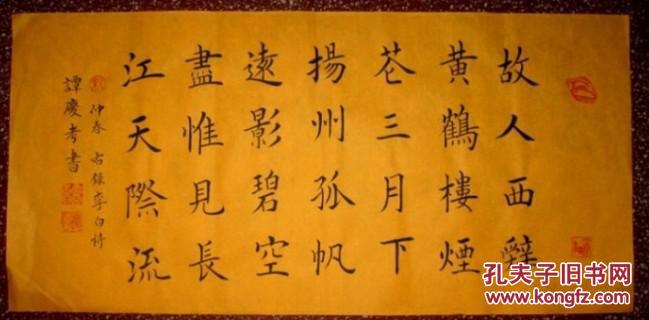 故人西辭
黃鶴樓煙
花三月下
揚州孤帆
遠影碧空
盡惟見長
江天際流
仲春 右錄李白詩
譚慶考書
孔夫子旧书网
www.kongfz.com